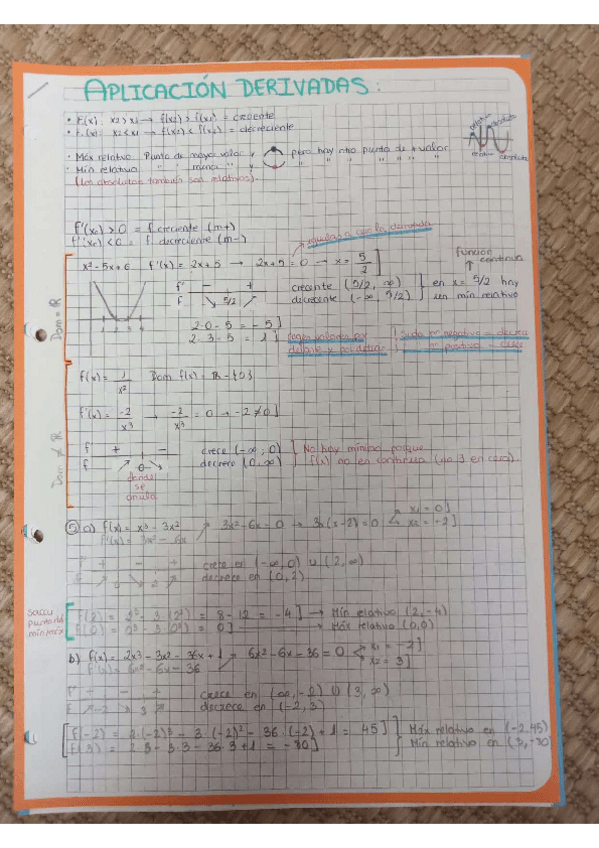 APLICACIÓN DERIVADAS:
• F(x): x2 > x1 → f(x2) > f(x1) = creciente
• F(x): x2 < x1 → f(x2) < f(x1) = decreciente
relativo absoluto
relativo absoluto
• Máx relativo: Punto de mayor valor y pero hay otro punto de + valor
• Mín relativo " " menor " y " " " " - "
(Los absolutos también son relativos).
f'(x0) > 0 = f. creciente (m+)
f'(x0) < 0 = f. decreciente (m-)
igualar a cero la derivada
Dom = R
x² - 5x + 6 f'(x) = 2x + 5 → 2x + 5 = 0 → x = 5/2]
función continua
f' - +
f 5/2
creciente (5/2, ∞)
decrecente (-∞, 5/2)
en x = 5/2 hay
un mín relativo
1 2 3 4
2·0 - 5 = -5]
2·3 - 5 = 1]
coger valores por
delante y por detrás
Si da nº negativo = decrece
nº positivo = crece
Dom ≠ R
f(x) = 1/x² Dom f(x) = R - {0}
f'(x) = -2/x³ → -2/x³ = 0 → -2 ≠ 0]
f' + -
f 0
donde
se
anula
crece (-∞, 0)
decrece (0, ∞)
No hay mínimo porque
f(x) no en continua (da 3 en cero).
⑤ a) f(x) = x³ - 3x² 3x² - 6x = 0 → 3x(x-2) = 0 x1 = 0] x2 = -2]
f'(x) = 3x² - 6x
f' + - +
f 0 2
crece en (-∞, 0) ∪ (2, ∞)
decrece en (0, 2)
sacar
punto del
mín/máx
f(2) = 2³ - 3·(2²) = 8 - 12 = -4] → Mín relativo (2, -4)
f(0) = 0³ - 3·(0²) = 0] → Máx relativo (0,0)
b) f(x) = 2x3 - 3x² - 36x + 1 6x² - 6x - 36 = 0 x1 = -2] x2 = 3]
f'(x) = 6x² - 6x - 36
f' + - +
f -2 3
crece en (∞, -2) ∪ (3, ∞)
decrece en (-2, 3)
f(-2) = 2·(-2)³ - 3·(-2)² - 36·(-2) + 1 = 45] Máx relativo en (-2, 45)
f(3) = 2·3 - 3·3 - 36·3 + 1 = -80] Mín relativo en (3, -80